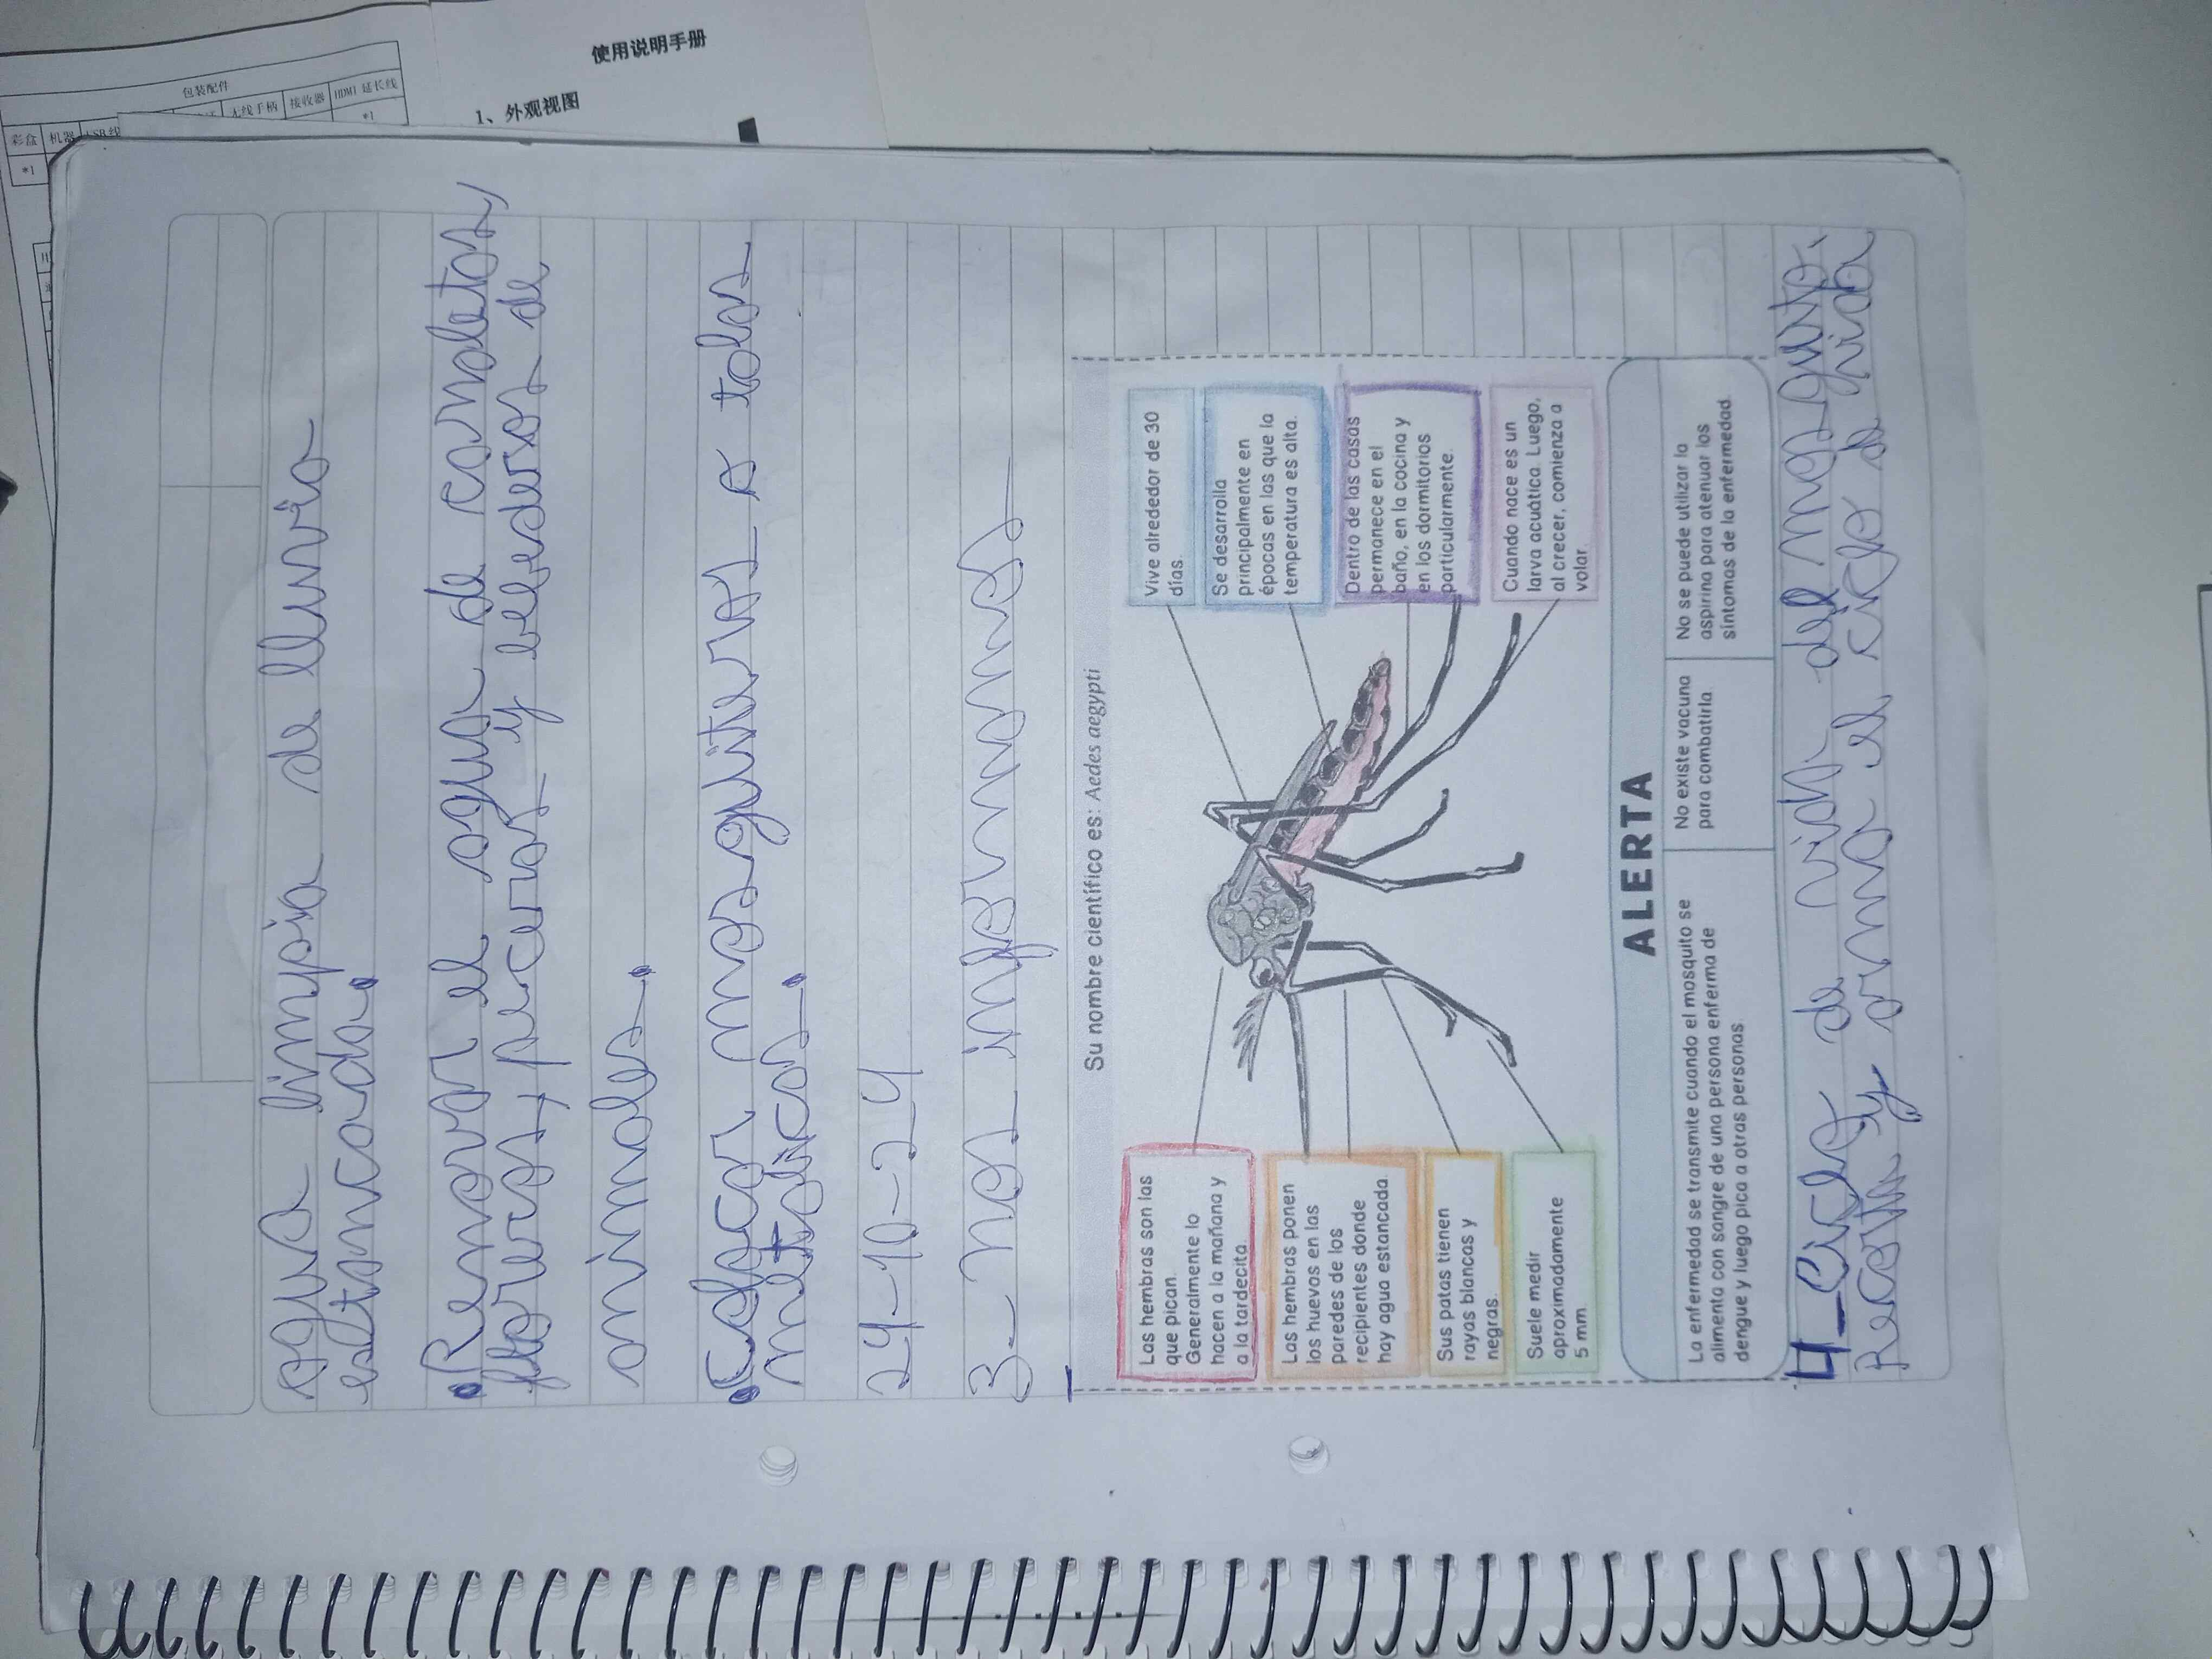 使用说明手册
1、外观视图
包装配件
彩盒 机器 USB线 无线手柄 接收器 HDMI 延长线
*1 *1
agua limpia de lluvia
estancada.
• Renovar el agua de canaletas,
floreros, peceras y bebederos de
animales.
• Colocar mosquiteros a telas
metalicas.
24-10-24
3- nos informamos
Su nombre científico es: Aedes aegypti
Las hembras son las
que pican.
Generalmente lo
hacen a la mañana y
a la tardecita.
Las hembras ponen
los huevos en las
paredes de los
recipientes donde
hay agua estancada.
Sus patas tienen
rayas blancas y
negras.
Suele medir
aproximadamente
5 mm.
Vive alrededor de 30
días.
Se desarrolla
principalmente en
épocas en las que la
temperatura es alta.
Dentro de las casas
permanece en el
baño, en la cocina y
en los dormitorios
particularmente.
Cuando nace es un
larva acuática. Luego,
al crecer, comienza a
volar.
ALERTA
La enfermedad se transmite cuando el mosquito se
alimenta con sangre de una persona enferma de
dengue y luego pica a otras personas.
No existe vacuna
para combatirla
No se puede utilizar la
aspirina para atenuar los
síntomas de la enfermedad.
4_Ciclo de vida del mosquito.
Recorta y arma el ciclo de vida